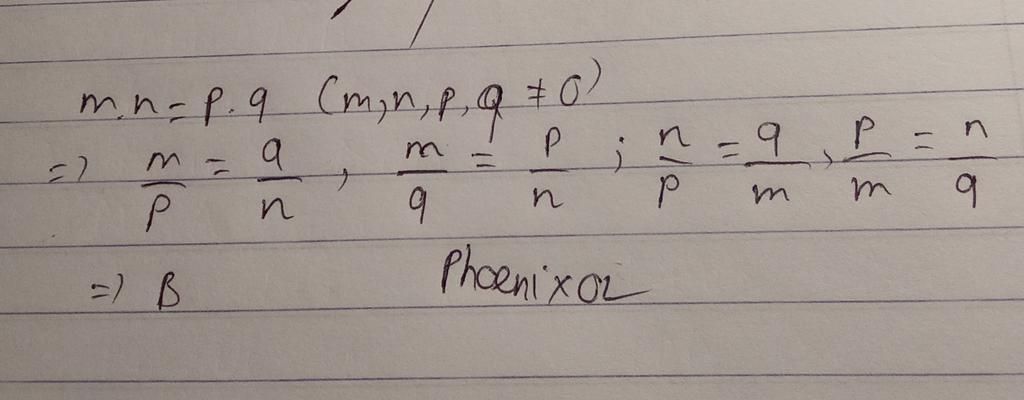 m.n = p.q (m,n,p,q ≠ 0)
=> m/p = q/n , m/q = p/n ; n/p = q/m , p/m = n/q
=> B Phoenixor